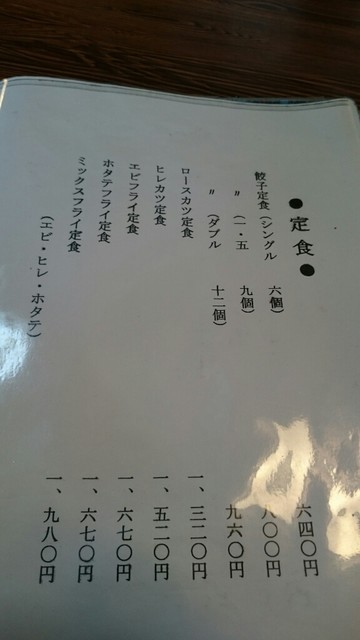 ●定食●
餃子定食(シングル 六個) 六四〇円
〃 (一・五 九個) 〇〇円
〃 (ダブル 十二個) 九六〇円
ロースカツ定食 一、三二〇円
ヒレカツ定食 一、五二〇円
エビフライ定食 一、六七〇円
ホタテフライ定食 一、六七〇円
ミックスフライ定食 一、九八〇円
(エビ・ヒレ・ホタテ)